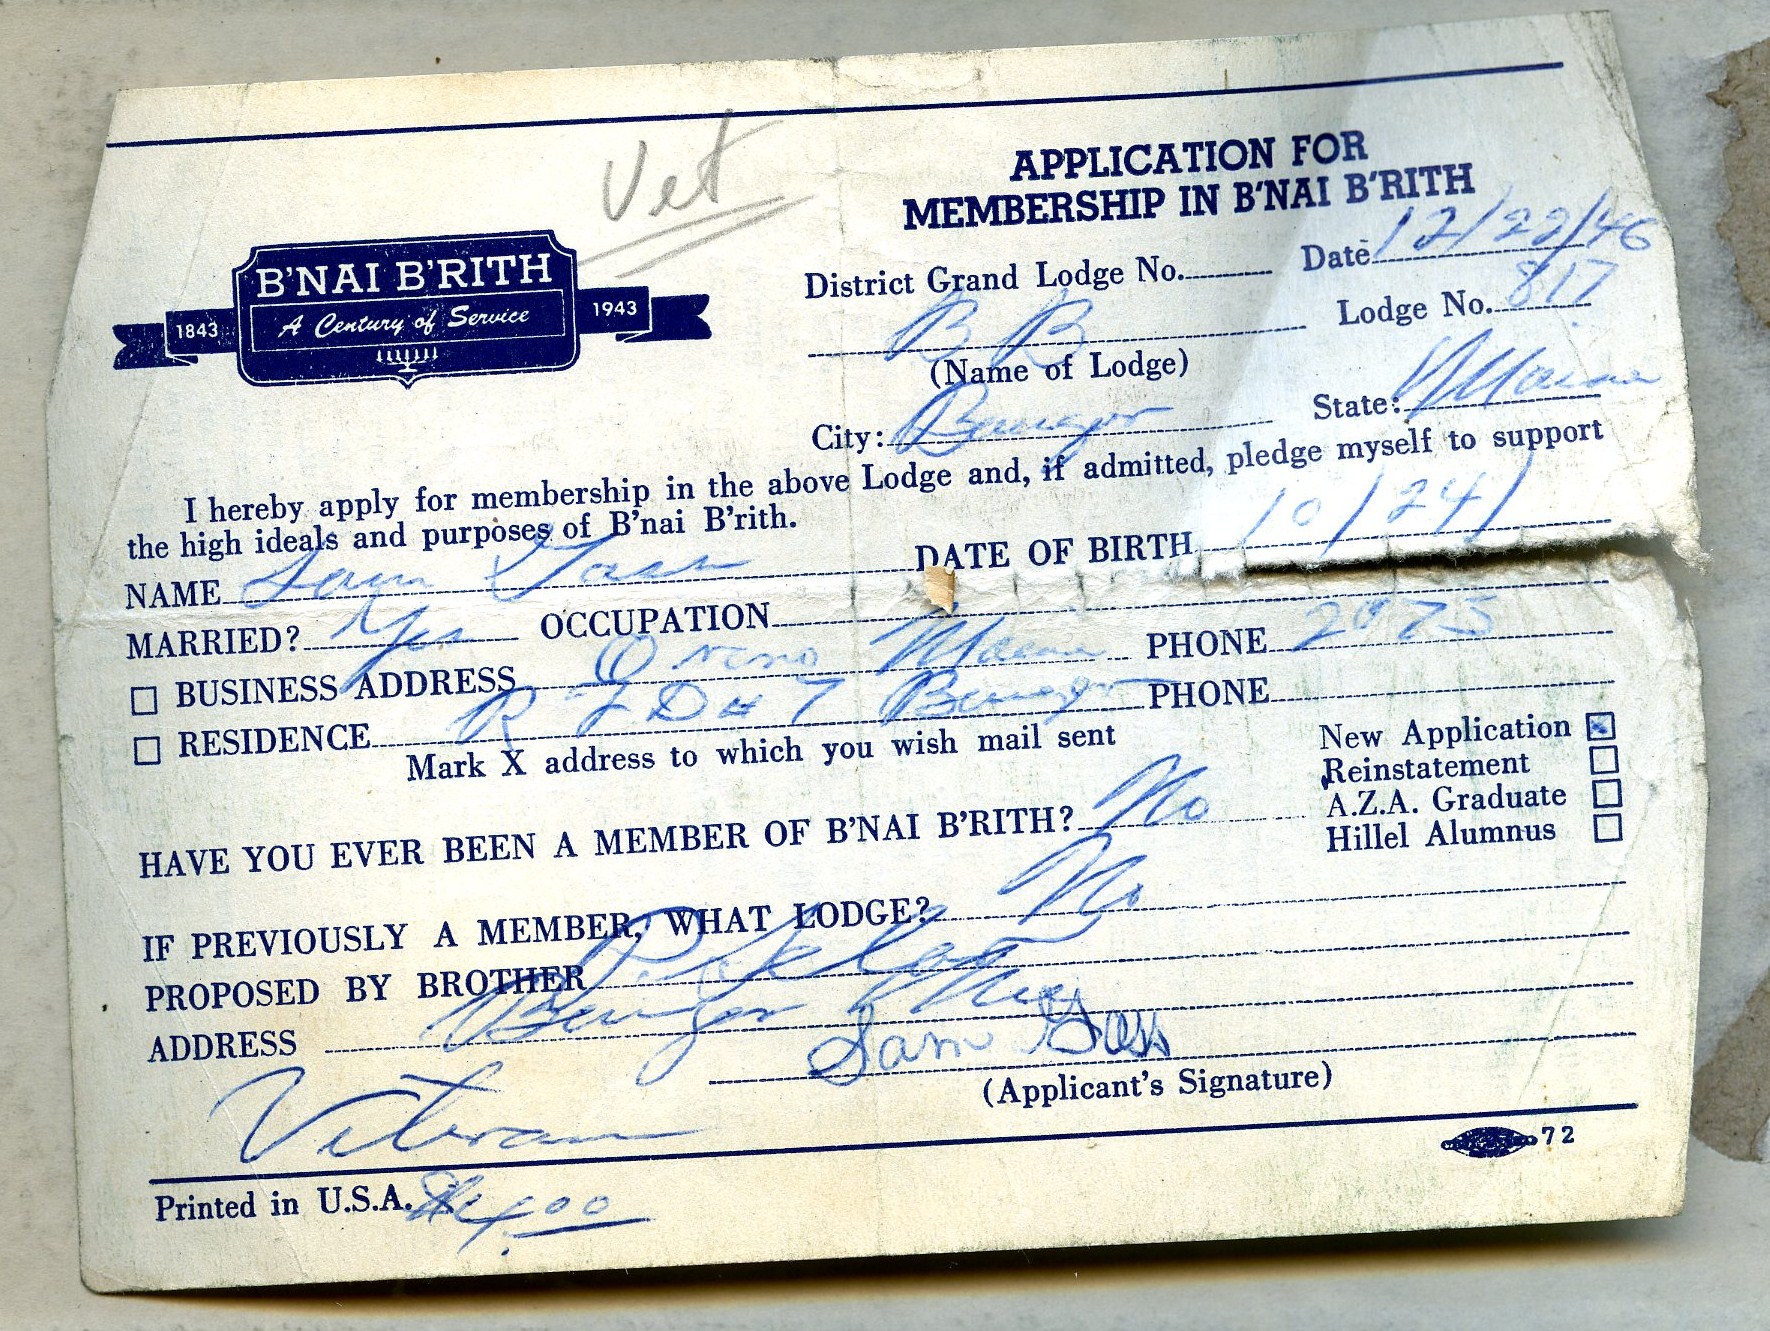 Vet
APPLICATION FOR
MEMBERSHIP IN B'NAI B'RITH
B'NAI B'RITH
1843 A Century of Service 1943
District Grand Lodge No. Date 12/22/46
B B Lodge No. 817
(Name of Lodge)
City: Bangor State: Maine
I hereby apply for membership in the above Lodge and, if admitted, pledge myself to support
the high ideals and purposes of B'nai B'rith.
NAME Sam Gass DATE OF BIRTH 10/24/
MARRIED? Yes OCCUPATION
BUSINESS ADDRESS Orono Maine PHONE 2975
RESIDENCE R F D # 7 Bangor PHONE
Mark X address to which you wish mail sent
New Application
Reinstatement
A.Z.A. Graduate
Hillel Alumnus
HAVE YOU EVER BEEN A MEMBER OF B'NAI B'RITH? No
IF PREVIOUSLY A MEMBER, WHAT LODGE? No
PROPOSED BY BROTHER
ADDRESS Bangor Me
Sam Gass
(Applicant's Signature)
Veteran
72
Printed in U.S.A.